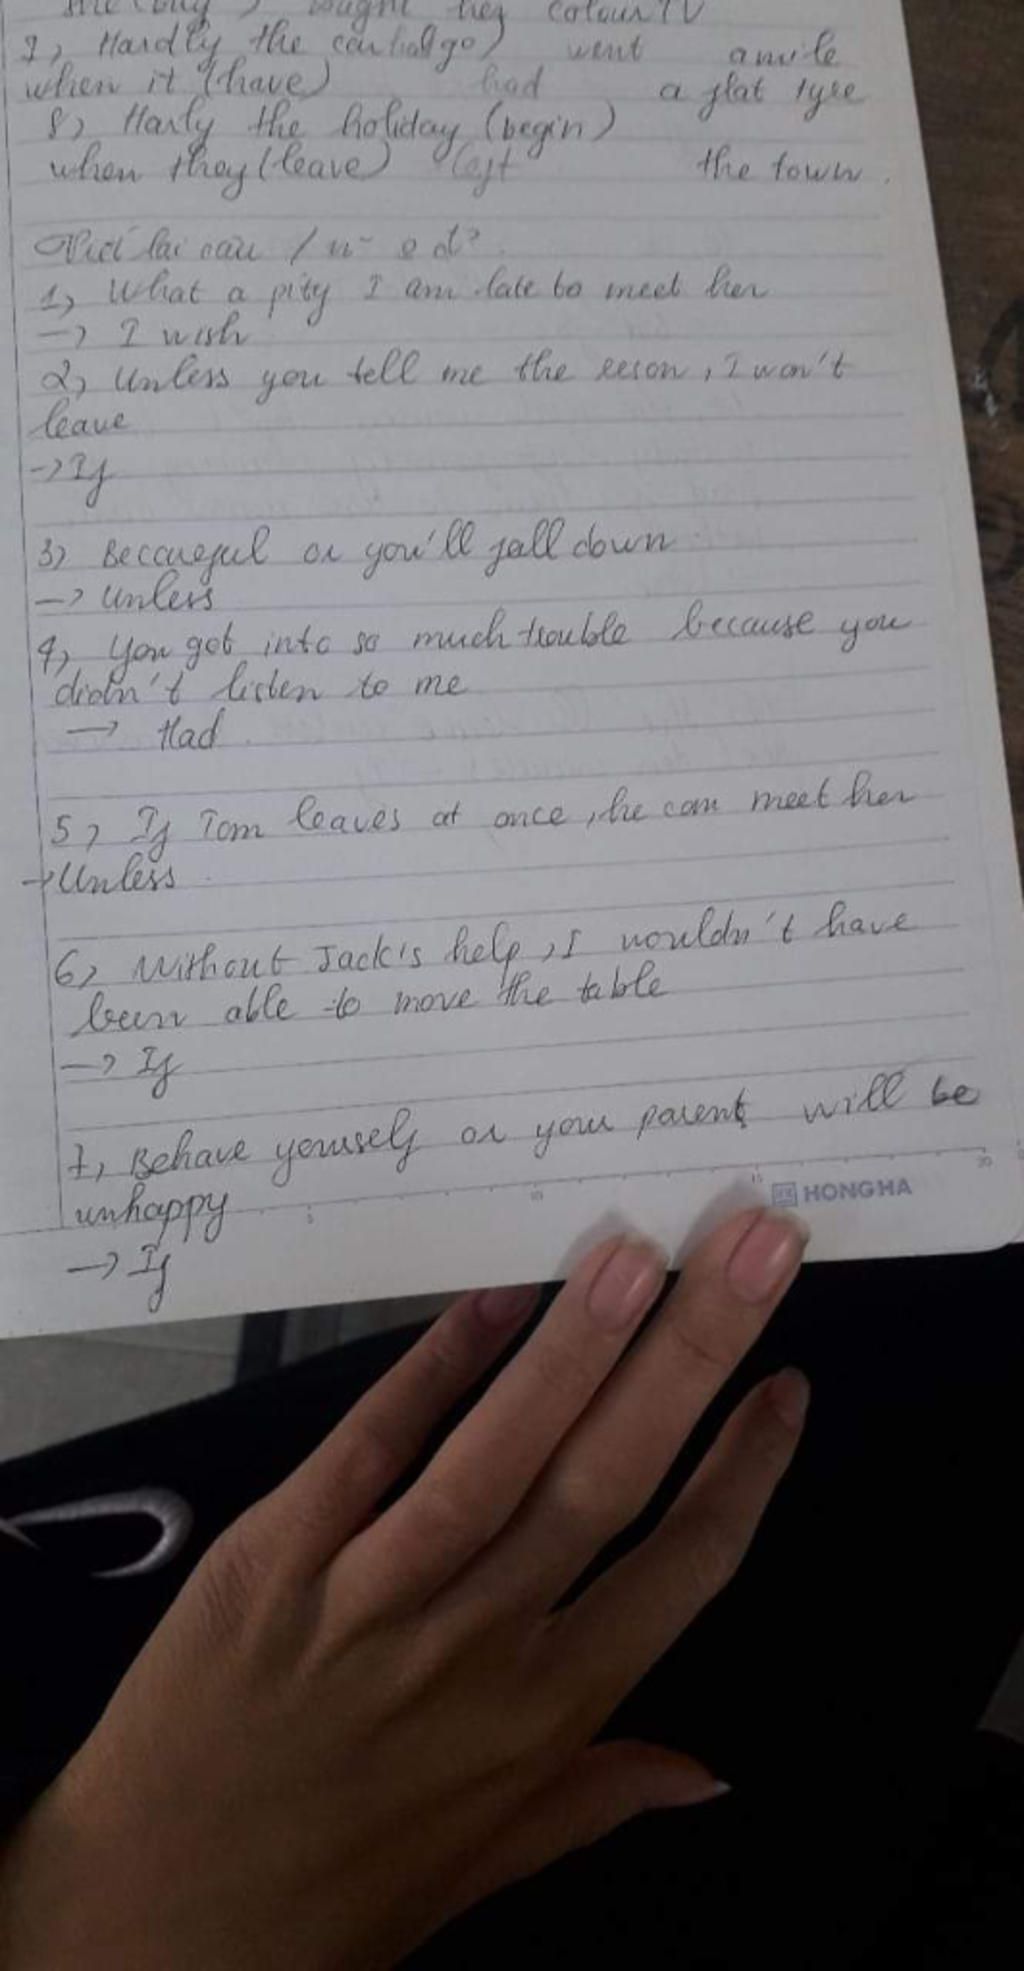 bought her colour TV
7) Hardly the car (go) went a mile
when it (have) had a flat tyre
8) Harly the holiday (begin)
when they (leave) left the town.
Viết lại câu
1) What a pity I am late to meet her
-> I wish
2) Unless you tell me the reson, I won't
leave
-> If
3) Be careful or you'll fall down
-> Unless
4) You got into so much trouble because you
didn't listen to me
-> Had
5) If Tom leaves at once, he can meet her
-> Unless
6) Without Jack's help, I wouldn't have
been able to move the table
-> If
7) Behave yourself or your parent will be
unhappy
-> If
5 10 15 20
HONG HA